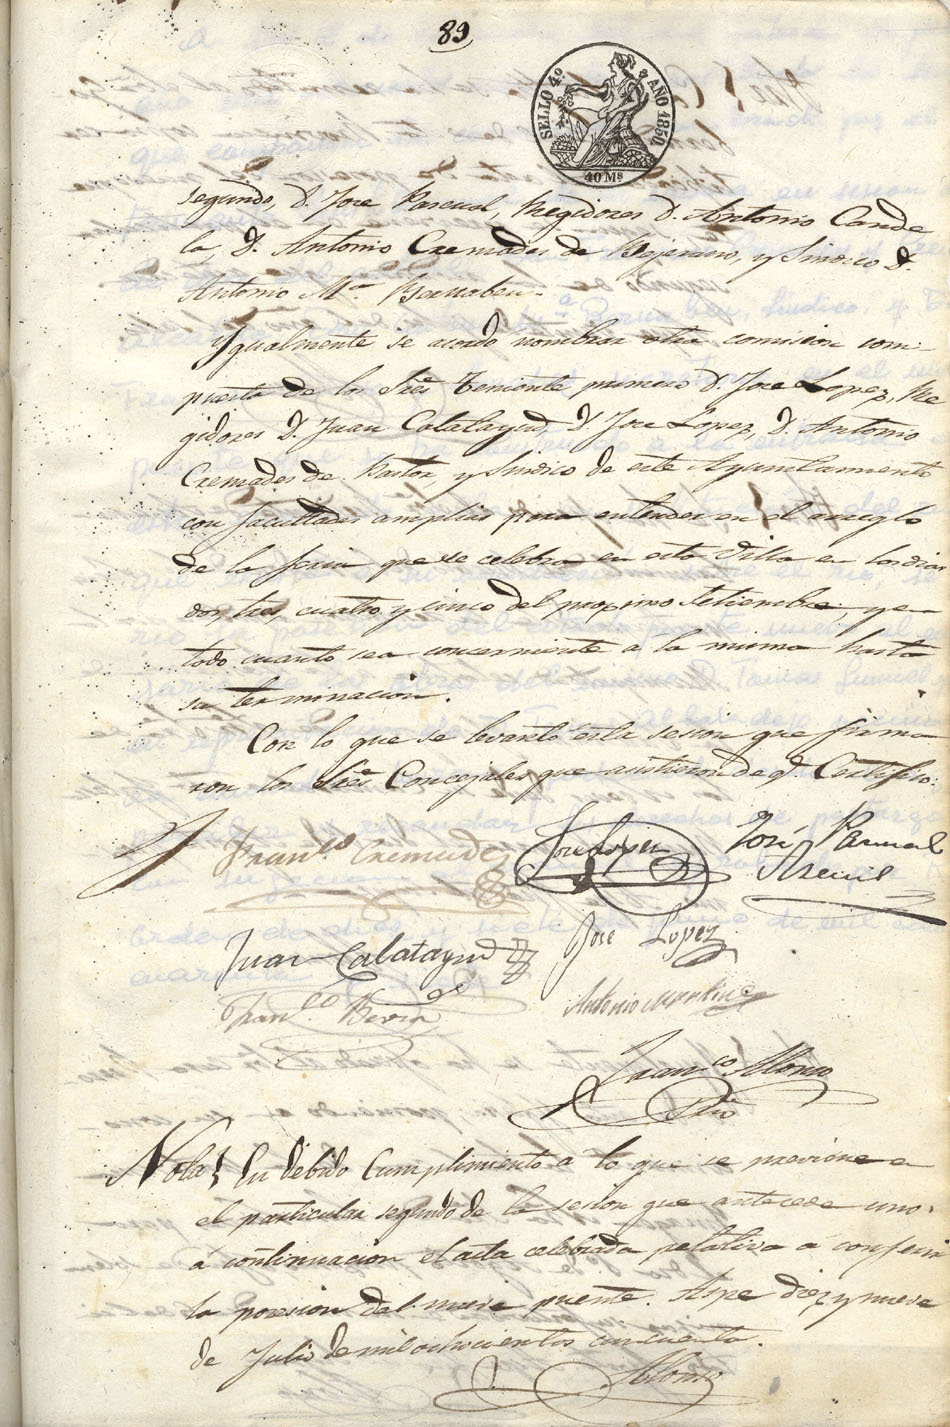 89
SELLO 4º AÑO 1850.
40 Ms
segundo, D. Jose Pascual, Regidores D. Antonio Cande
la, D. Antonio Cremades de Bejerano, y Sindico D.
Antonio Mª Barnabeu.
Ygualmente se acordo nombrar otra comision com-
puesta de los Sres Teniente primero D. Jose Lopez, Re
gidores D. Juan Calatayud, D. Jose Lopez, D. Antonio
Cremades de Pastor y Sindico de este Ayuntamiento
con facultades amplias para entender en el arreglo
de la feria que se celebra en esta Villa en los dias
dos, tres, cuatro y cinco del proximo Setiembre, y en
todo cuanto sea concerniente a la misma hasta
su terminacion.
Con lo que se levantó esta sesion que firma
ron los Sres Concejales que asistieron de q. Certifico.
Franco Cremades Jose Lopez José Pascual
Juan Calatayud Jose Lopez
Franco Antonio Martinez
Franco Alonso
Srio
Nota. En debido cumplimiento a lo que se previene en
el particular segundo de la sesion que antecede uno
á continuacion el acta celebrada relativa á conferir
la posesion del nuevo puente. Aspe diez y nueve
de Julio de mil ochocientos cincuenta.
Alonso